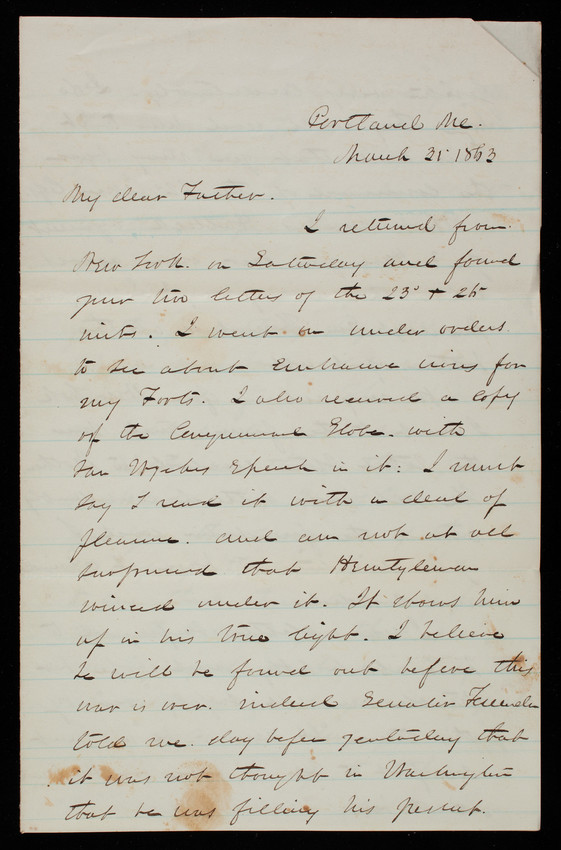 Portland Me.
March 31 1863
My dear Father.
I returned from
New York on Saturday and found
your two letters of the 23d + 25
inst. I went on under orders
to see about Embrasure irons for
my Forts. I also received a copy
of the Congressional Globe. with
Speech in it: I must
say I read it with a deal of
pleasure. and am not at all
surprised that Heintzleman
winced under it. It shows him
up in his true light. I believe
he will be found out before this
war is over. indeed Senator
told me. day before yesterday that
it was not thought in Washington
that he was filling his present.